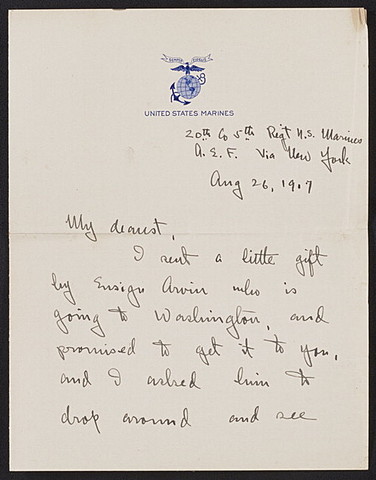 SEMPER FIDELIS
UNITED STATES MARINES
20th Co 5th Regt U.S. Marines
A. E. F. Via New York
Aug 26, 1917
My dearest,
I sent a little gift
by Ensign Arvin who is
going to Washington, and
promised to get it to you,
and I asked him to
drop around and see